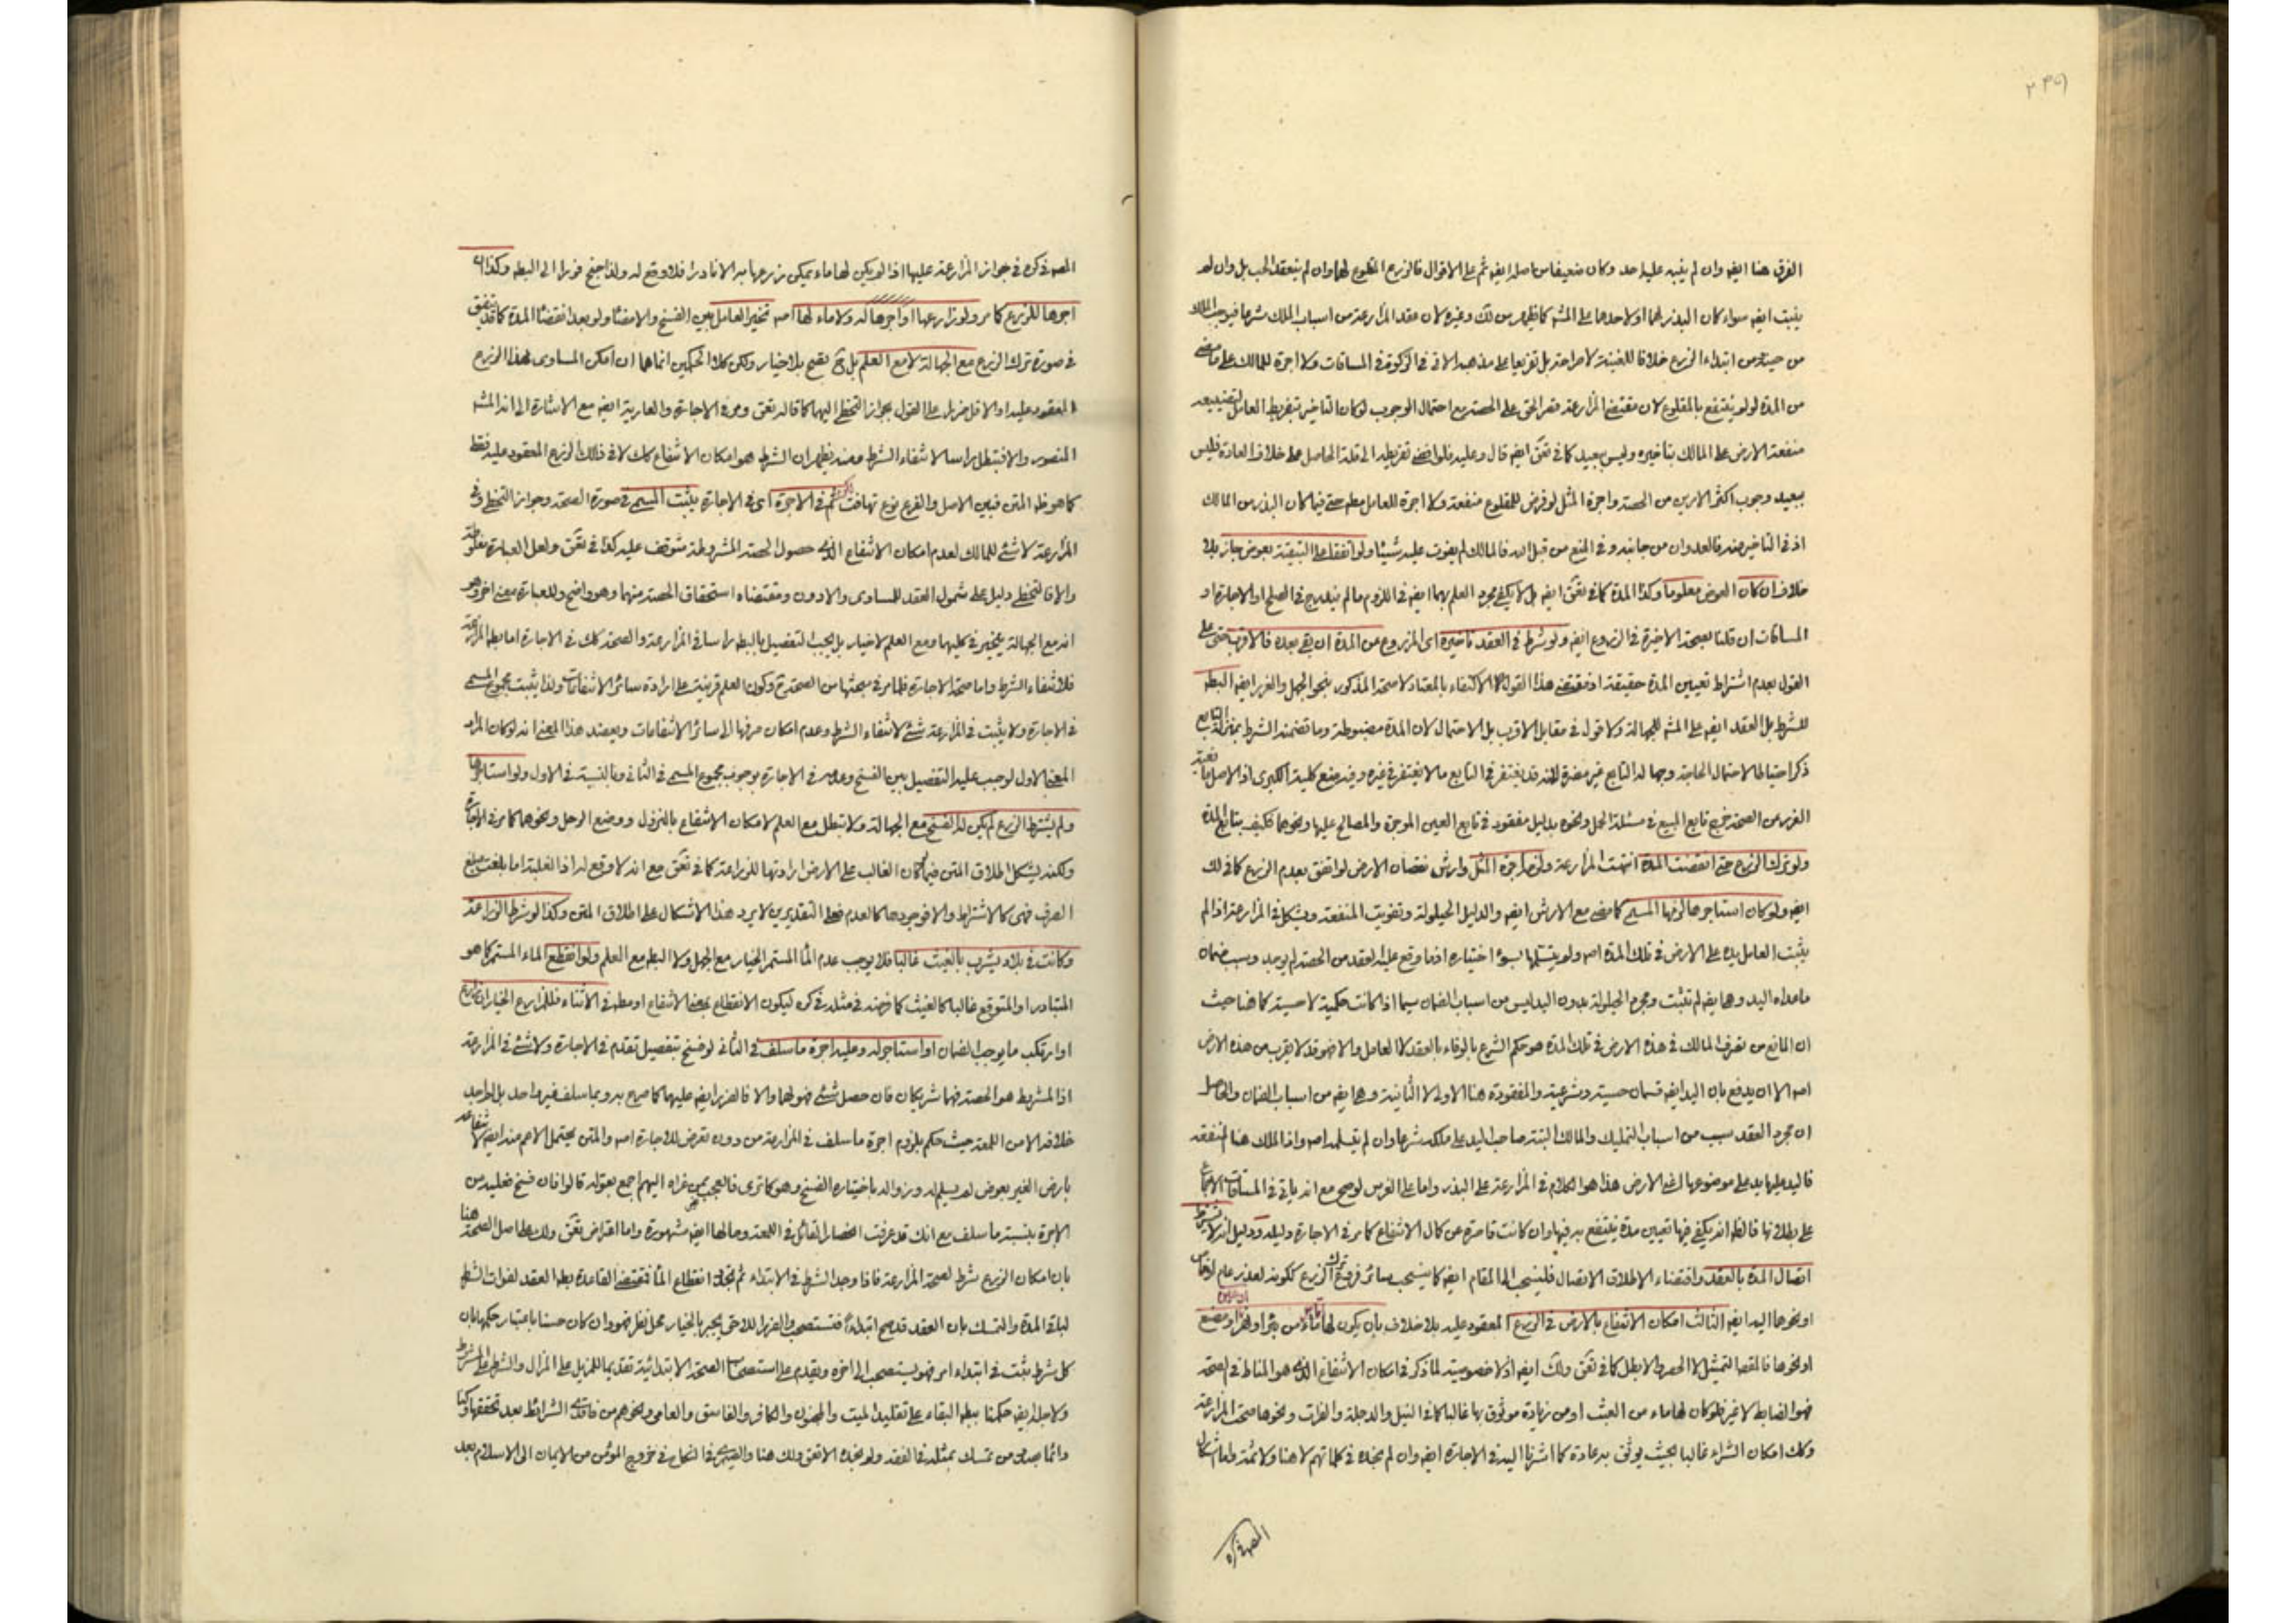 الفرق هنا ايضه وان لم ينبه عليه احد وكان ضعيفا من اصله ايضه ثم على الاقوال فالزرع المقلوع لهما وان لم ينعقد الحب بل وان لم
ينبت ايضه سواء كان البذر لهما او لاحدهما على المشه كما ظهر من لك وغيره لان عقد المزارعة من اسباب الملك شرعا فيوجب الملك
من حينه من ابتداء الزرع خلافا للغنية لا صراحة بل تفريعا على مذهبه الاتي في الزكوة في المساقات ولا اجرة للمالك على ما مضى
من المدة لو لم ينتفع بالمقلوع لان مقتضى المزارعة قصر الحق على الحصة مع احتمال الوجوب لو كان التاخير بتفريط العامل لتضييعه
منفعة الارض على المالك بتاخيره وليس ببعيد كما في تعق ايضه قال وعليه فلو افضى تفريطه الى قلة الحاصل على خلاف العادة فليس
ببعيد وجوب اكثر الامرين من الحصة واجرة المثل لو فرض للمقلوع منفعة ولا اجرة للعامل مطه حتى فيما كان البذر من المالك
اذ في التاخير منه فالعدوان من جانبه وفي المنع من قبل الله فالمالك لم يفوت عليه شيئا ولو اتفقا على التبقية بعوض جاز بلا
خلاف ان كان العوض معلوما وكذا المدة كما في تعق ايضه بل لا يكفي مجرد العلم بهما ايضه في اللزوم ما لم يندرج في الصلح او الاجارة او
المساقات ان قلنا بصحة الاخيرة في الزروع ايضه ولو شرط في العقد تاخيره اى المزروع عن المدة ان بقي بعده فالاقرب حتى على
القول بعدم اشتراط تعيين المدة حقيقة اذ مقتضى هذا القول الاكتفاء بالمعتاد لا صحة المذكور بنحو الجهل والغرر ايضه البطه
للشرط بل العقد ايضه على المشه للجهالة ولا قول في مقابل الاقرب بل الاحتمال لان المدة مضبوطة وما تضمنه الشرط بمنزلة التابع
ذكر احتياطا لاحتمال الحاجة وجهالة التابع غير مضرة لانه قد يغتفر في التابع ما لا يغتفر في غيره وفيه منع كلية الكبرى اذ الاصل
الغرر من الصحة خرج تابع المبيع في مسئلة الحمل ونحوه بدليل مفقود في تابع العين الموجرة والمصالح عليها ونحوها فكيف بتابع المدة
ولو ترك الزرع حتى انقضت المدة انتهت المزارعة ولزمه اجرة المثل وارش نقصان الارض لو اتفق بعدم الزرع كما في لك
ايضه ولو كان استاجرها لزمها المسمى كما مضى مع الارش ايضه والدليل الحيلولة وتفويت المنفعة ويشكل في المزارعة اذا لم
يثبت العامل يده على الارض في تلك المدة اصه ولم يتسلمها بسوء اختياره اذ ما وقع عليه العقد من الحصة لم يوجد وسبب ضمان
ما عداه اليد وهي ايضه لم تثبت ومجرد الحيلولة بدون اليد ليس من اسباب الضمان سيما اذا كانت حكمية لا حسية كما هنا حيث
ان المانع من تصرف المالك في هذه الارض في تلك المدة هو حكم الشرع بالوفاء بالعقد لا العامل والا فهو قد لا يقرب من هذه الارض
اصه الا ان يدفع بان اليد ايضه قسمان حسية وشرعية والمفقودة هنا الاولى لا الثانية وهي ايضه من اسباب الضمان والحاصل
ان مجرد العقد سبب من اسباب التمليك والمالك البتة صاحب اليد على ملكه شرعا وان لم يتسلمه اصه واذ الملك هنا المنفعة
فاليد عليها يد على موضوعها اعني الارض هذا هو الكلام في المزارعة على البذر واما على الغرس لوضح مع انه ياتي في المساقات الاجماع
على بطلانها فالظه انه يكفي فيها تعيين مدة ينتفع به فيها وان كانت قاصرة عن كمال الانتفاع كما مر في الاجارة دليله ودليل انه لا يشترط
اتصال المدة بالعقد واقتضاء الاطلاق الاتصال فلينسحب الى المقام ايضه كما ينسحب سائر فروع ترك الزرع ككونه لعذر عام او خاص
او نحوها اليه ايضه الثالث امكان الانتفاع بالارض في الزرع المعقود عليه بلا خلاف بان يكون لها ماء من بئر او نهر او مصنع
او نحوها فالمقصه التمثيل لا الحصر والا بطل كما في تعق ولك ايضه اذ لا خصوصية لما ذكر في امكان الانتفاع الذى هو المناط في الصحة
فهو الضابط لا غير فلو كان لها ماء من الغيث او من زيادة موثوق بها غالبا كما في النيل والدجلة والفرات ونحوها صحت المزارعة
وكك امكان الشراء غالبا بحيث يوثق به عادة كما اشرنا اليه في الاجارة ايضه وان لم نجده في كلماتهم لا هنا ولا ثمة ولعل اشكال
المصه في كره
المصه في كره في جواز المزارعة عليها اذا لم يكن لها ماء يمكن زرعها به الا نادرا فلا وقع له ولذا جنح فورا الى البطه وكذا
اجرها للزرع كما مر ولو زارعها او اجرها له ولا ماء لها اصه تخير العامل بين الفسخ والامضاء ولو بعد انقضاء المدة كما قد يتفق
في صورة ترك الزرع مع الجهالة لا مع العلم بل ح يقع بلا خيار ولكن كلا الحكمين انما هما ان امكن المساوى لهذا الزرع
المعقود عليه او الاقل ضررا بل على القول بجواز التخطى اليها كما قاله تعق ومر في الاجارة والعارية ايضه مع الاشارة الى انه المشه
المنصور والا فيبطل راسا لانتفاء الشرط ومنه يظهر ان الشرط هو امكان الانتفاع كك لا في ذلك الزرع المعقود عليه فقط
كما هو ظه المتن فبين الاصل والفرع نوع تهافت ثم في الاجرة اى في الاجارة يثبت المسمى في صورة الصحة وجواز التخطى وفي
المزارعة لا شئ للمالك لعدم امكان الانتفاع الذى حصول الحصة المشروطة متوقف عليه كذا في تعق ولعل العبارة مغلوطة
والا فالتخطى دليل على شمول العقد للمساوى والادون ومقتضاه استحقاق الحصة منهما وهو واضح وللعبارة معنى اخر وهو
انه مع الجهالة يتخير في كليهما ومع العلم لا خيار بل يجب التفصيل بالبطه راسا في المزارعة والصحة كك في الاجارة اما بطه المزارعة
فلانتفاء الشرط واما صحة الاجارة فلما مر في مبحثها من الصحة ح وكون العلم قرينة على ارادة سائر الانتفاعات ولذا يثبت مجموع المسمى
في الاجارة ولا يثبت في المزارعة شئ لانتفاء الشرط وعدم امكان صرفها الى سائر الانتفاعات ويعضد هذا المعنى انه لو كان المراد
المعنى الاول لوجب عليه التفصيل بين الفسخ وعدمه في الاجارة بوجوب مجموع المسمى في الثاني وبالنسبة في الاول ولو استاجرها
ولم يشترط الزرع لم يكن له الفسخ مع الجهالة ولا تبطل مع العلم لامكان الانتفاع بالنزول ووضع الرحل ونحوها كما مر في الاجارة
ولكنه يشكل اطلاق المتن فيما كان الغالب على الارض ارادتها للزراعة كما في تعق مع انه لا وقع له اذ الغلبة اما بلغت مبلغ
الصرف فهى كالاشتراط والا فوجودها كالعدم فعلى التقديرين لا يرد هذا الاشكال على اطلاق المتن وكذا لو شرط الزراعة
وكانت في بلاد يشرب بالغيث غالبا فلا يوجب عدم الماء المستمر الخيار مع الجهل ولا البطه مع العلم ولو انقطع الماء المستمر كما هو
المتبادر او المتوقع غالبا كالغيث كما فرضه في مثله في كره ليكون الانقطاع بعض الانتفاع او مطه في الاثناء فللمزارع الخيار ان زارع
او ارتكب ما يوجب الضمان او استاجر له وعليه اجرة ما سلف في الثاني لو فسخ بتفصيل تقدم في الاجارة ولا شئ في المزارعة
اذ المشروط هو الحصة فهما شريكان فان حصل شئ فهو لهما والا فالضرر ايضه عليهما كما صرح به وبما سلف غير واحد بل لا واجد
خلافه الا من اللمعة حيث حكم بلزوم اجرة ما سلف في المزارعة من دون تعرض للاجارة اصه والمتن يحتمل الاعم منه ايضه لانتفاعه
بارض الغير بعوض لم يسلم له وزواله باختياره الفسخ وهو كما ترى فالعجب ممن عزاه اليهم اجمع بقوله قالوا فان فسخ فعليه من
الاجرة بنسبة ما سلف مع انك قد عرفت انحصار القائل في اللمعة وحالها ايضه مشهورة واما اعتراض تعق ولك على اصل الصحة هنا
بان امكان الزرع شرط لصحة المزارعة فاذا وجد الشرط في الابتداء ثم تجدد انقطاع الماء فمقتضى القاعدة بطه العقد لفوات الشرط
لباقي المدة والتمسك بان العقد قد صح ابتداء فتستصحب والضرر اللاحق يجبر بالخيار محل نظر فهو وان كان حسنا باعتبار حكمها بان
كل شرط يثبت في ابتداء امر فهو يستصحب الى اخره ويقدم على استصحاب الصحة الابتدائية تقديما للمزيل على المزال والشرط على المشروط
ولاجله ايضه حكمنا ببطه البقاء على تقليد الميت والمجنون والكافر والفاسق والعامى ونحوهم من فاقدى الشرائط بعد تحققها وكنا
دائما بصدد من تمسك بمثله في الفقه ولم نجده الا تعق ولك هنا والقيصرى في النكاح في خروج المؤمن من الايمان الى الاسلام بعد